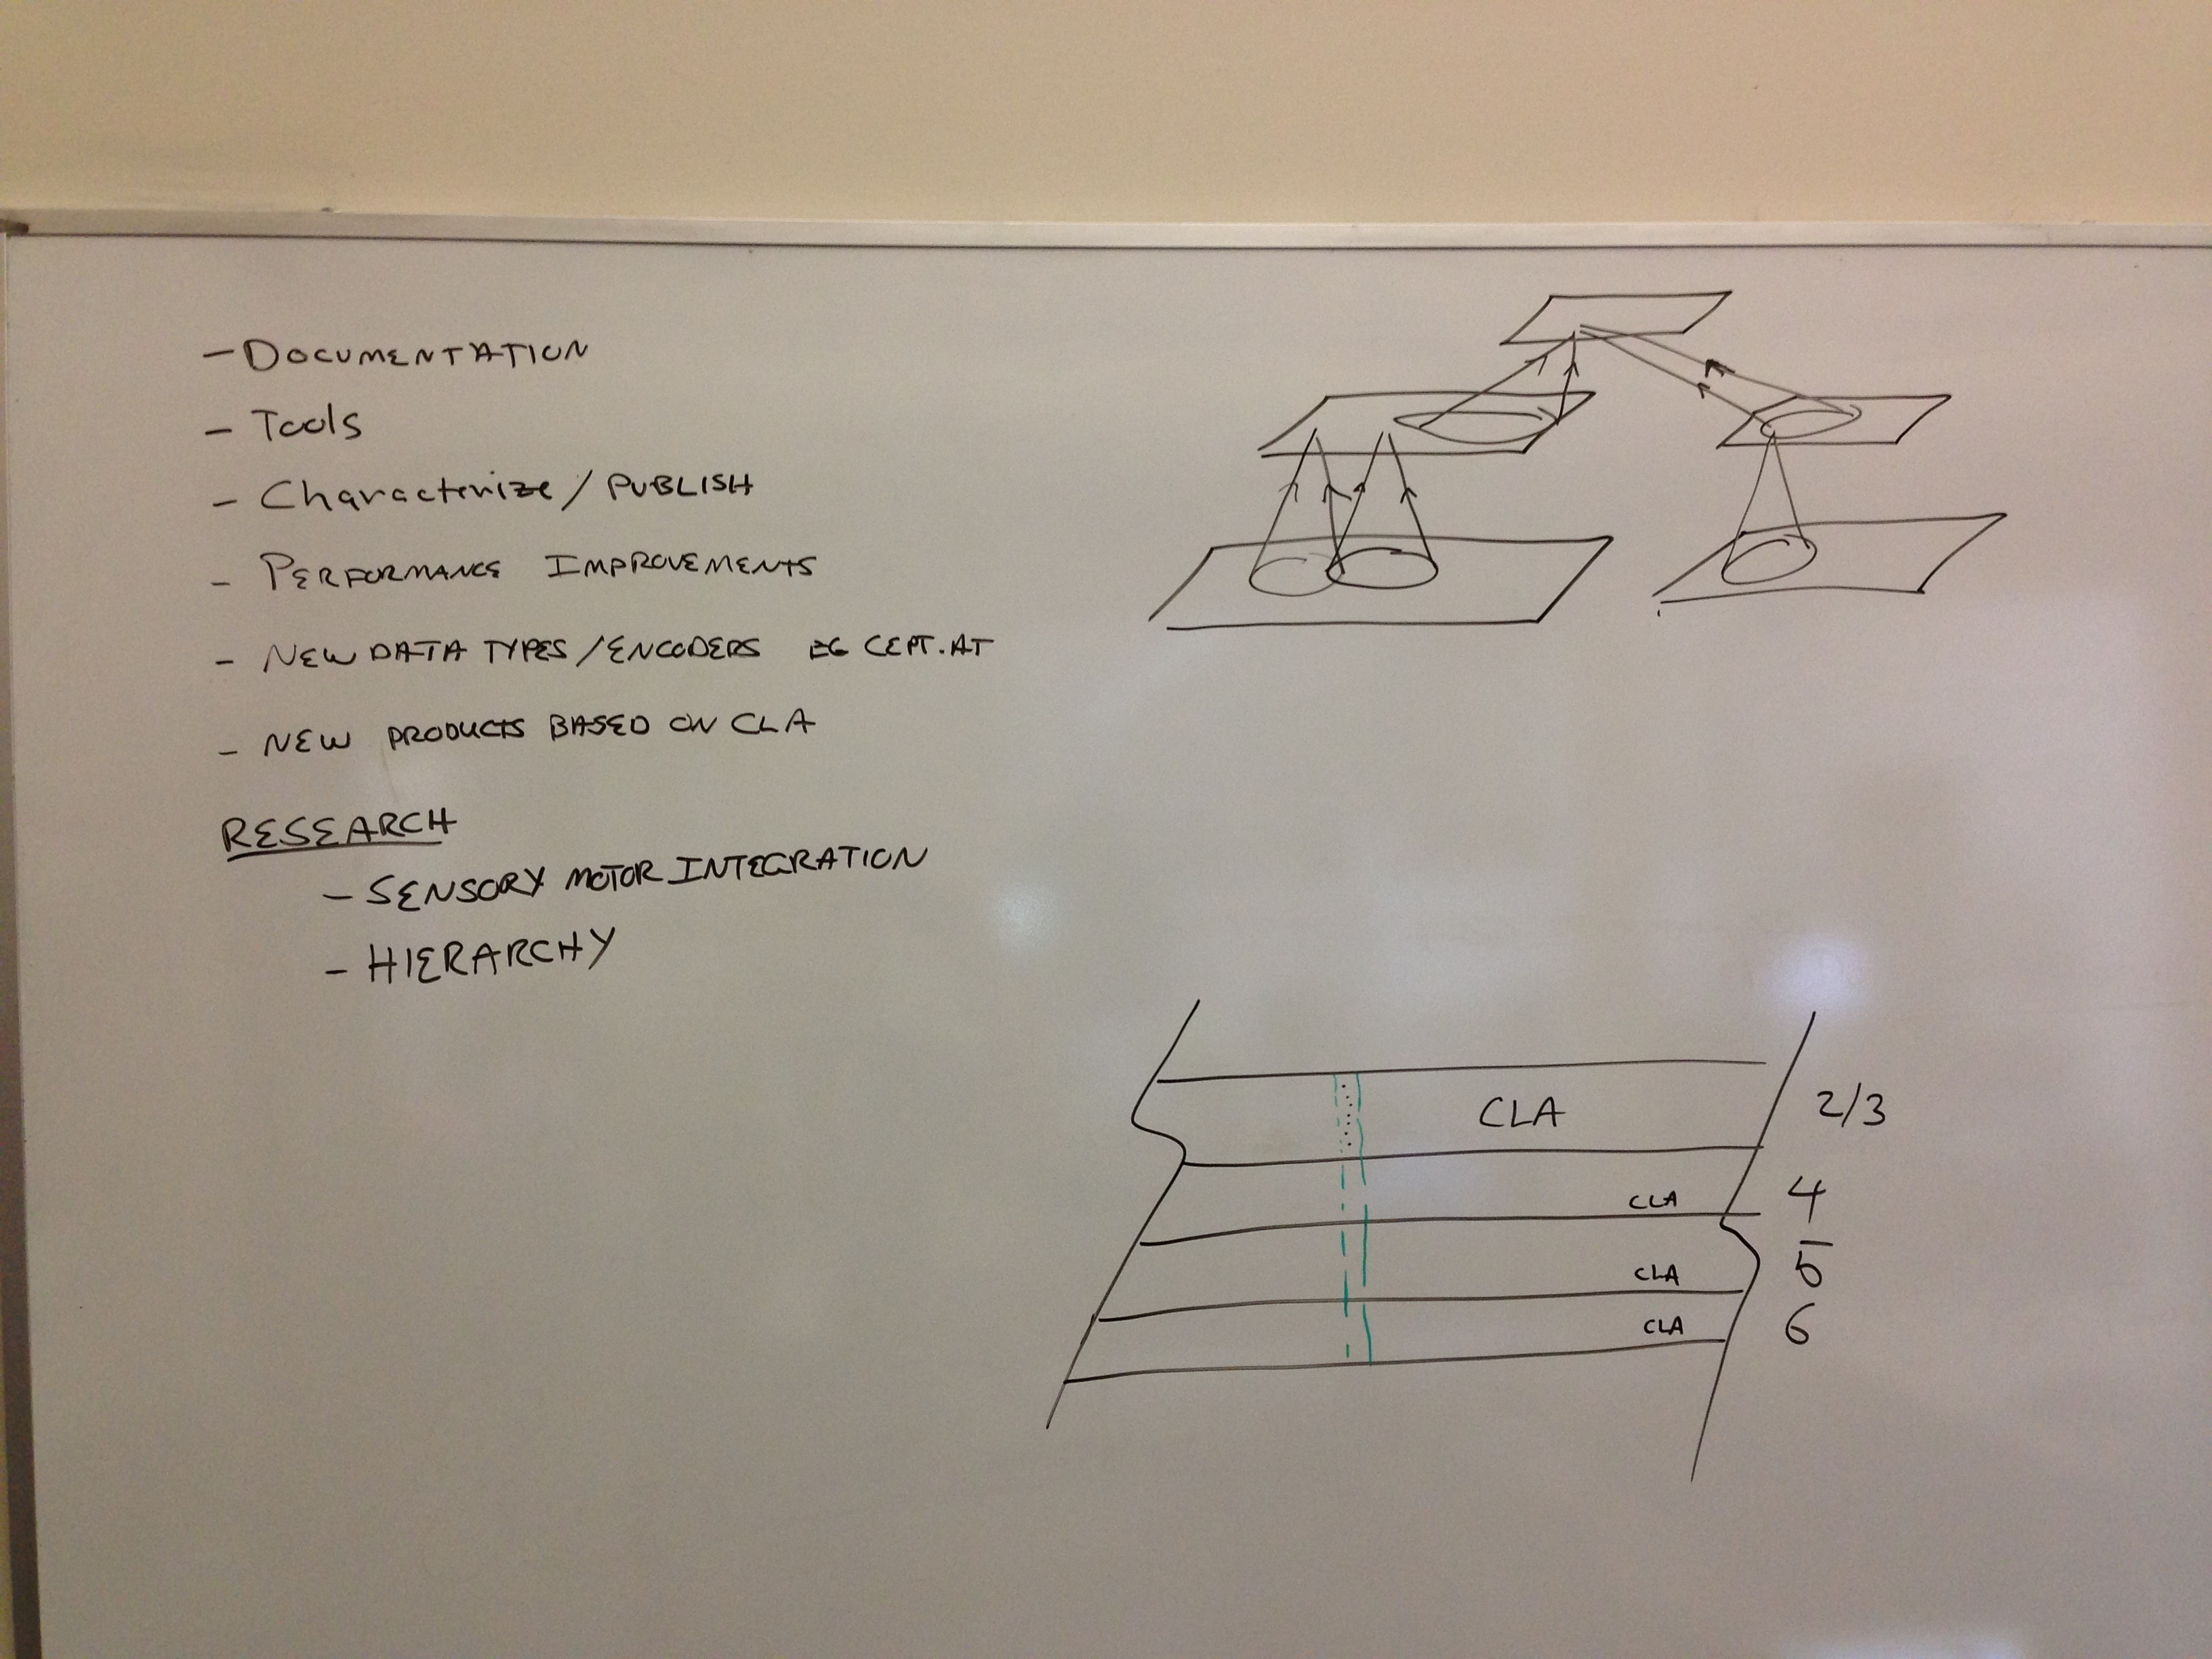 - DOCUMENTATION
- Tools
- Characterize / PUBLISH
- PERFORMANCE IMPROVEMENTS
- NEW DATA TYPES / ENCODERS EG CEPT.AT
- NEW PRODUCTS BASED ON CLA
RESEARCH
- SENSORY MOTOR INTEGRATION
- HIERARCHY
CLA 2/3
CLA 4
CLA 5
CLA 6